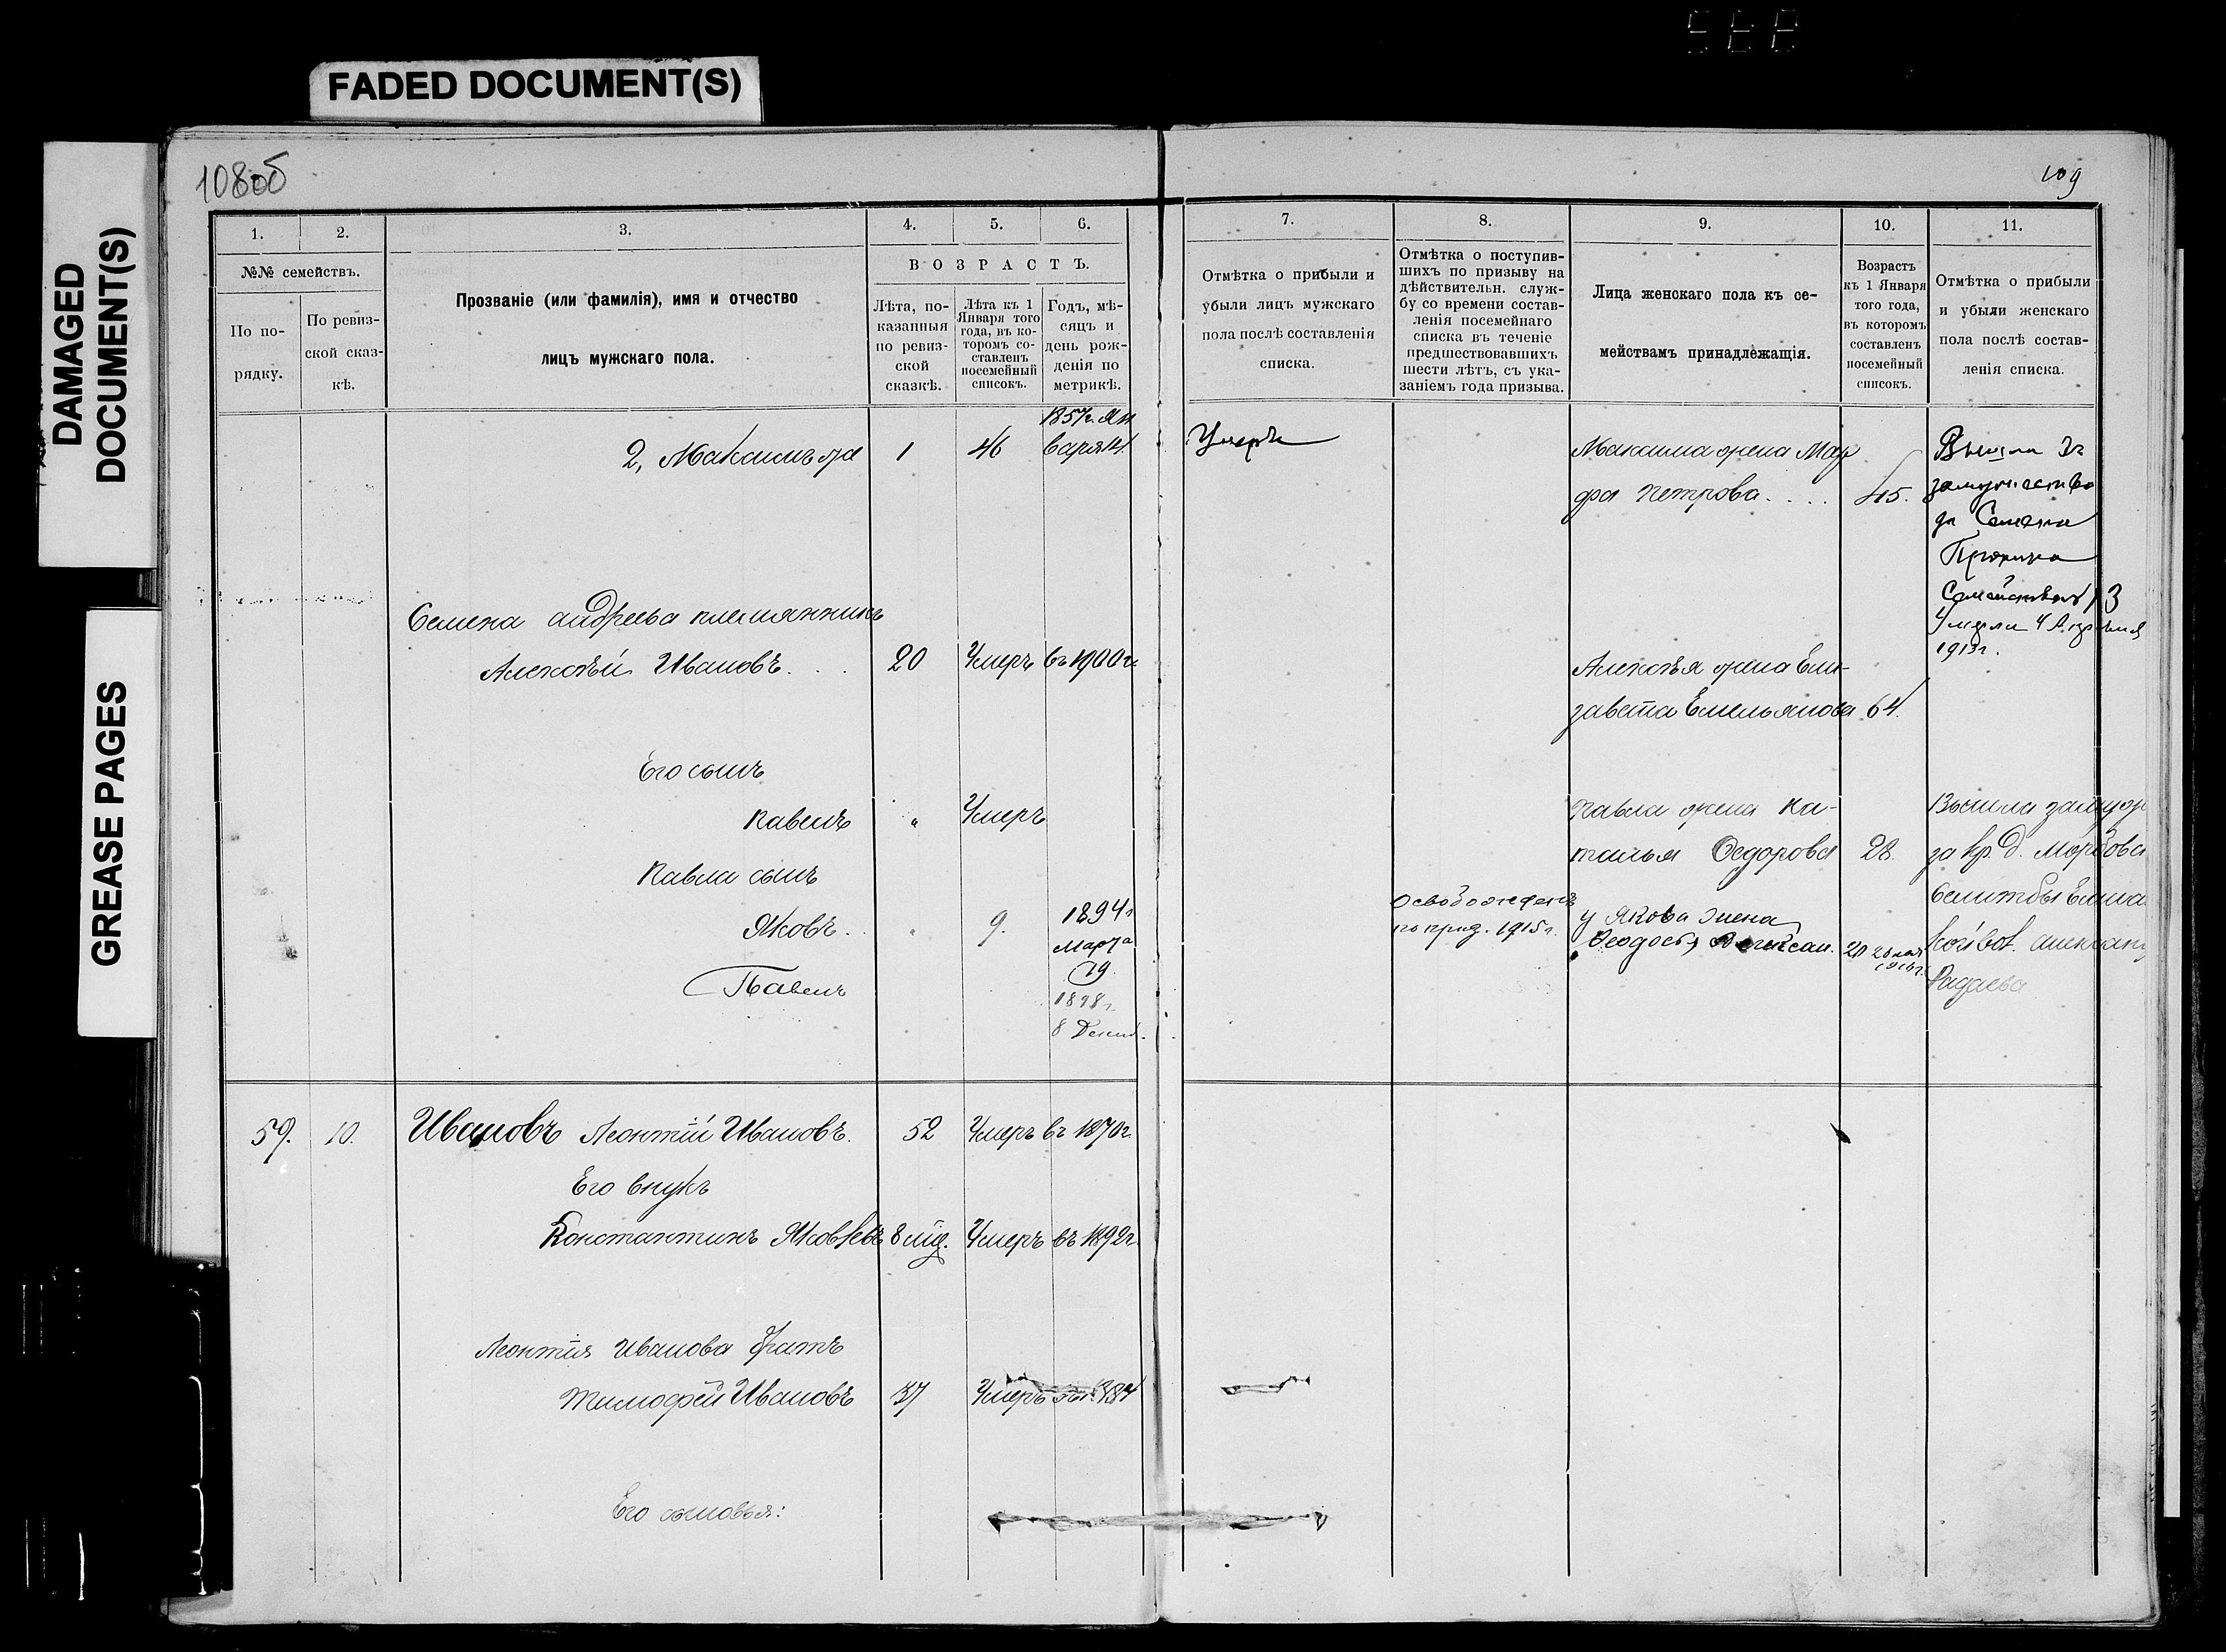 FADED DOCUMENT(S)
DAMAGED DOCUMENT(S)
GREASE PAGES
108об
109
1.
2.
3.
4.
5.
6.
№№ семействъ.
По по-
рядку.
По ревиз-
ской сказ-
кѣ.
Прозваніе (или фамилія), имя и отчество
лицъ мужскаго пола.
ВОЗРАСТЪ.
Лѣта, по-
казанныя
по ревиз-
ской
сказкѣ.
Лѣта къ 1
Января того
года, въ ко-
торомъ со-
ставленъ
посемейный
списокъ.
Годъ, мѣ-
сяцъ и
день рож-
денія по
метрикѣ.
7.
8.
9.
10.
11.
Отмѣтка о прибыли и
убыли лицъ мужскаго
пола послѣ составленія
списка.
Отмѣтка о поступив-
шихъ по призыву на
дѣйствительн. служ-
бу со времени состав-
ленія посемейнаго
списка въ теченіе
предшествовавшихъ
шести лѣтъ, съ ука-
заніемъ года призыва.
Лица женскаго пола къ се-
мействамъ принадлежащія.
Возрастъ
къ 1 Января
того года,
въ которомъ
составленъ
посемейный
списокъ.
Отмѣтка о прибыли
и убыли женскаго
пола послѣ состав-
ленія списка.
2, Максимъ 1 46 1857г. Ян
варя 14.
Умеръ
Максима жена Мар
фа Петрова.... 45.
Вышла въ
замужество
за Семена
Семена Андреева племянникъ
Алексѣй Ивановъ... 20 Умеръ въ 1900г.
Алексѣя жена Ели-
завета Емельянова 64.
Умерла 4 Апрѣля
1913г.
Его сынъ
Павелъ " Умеръ
Павла жена На-
талья Ѳедорова 28.
Вышла замуж
за кр. д.
Павла сынъ
Яковъ. " 9. 1894г
Марта
19
Освобожденъ
по приз. 1915г.
у Якова жена
Ѳеодосія Алексан.
Радаева
Павелъ
1898г.
8 Декаб.
59. 10. Ивановъ Леонтій Ивановъ. 52 Умеръ въ 1870г.
Его внукъ
Константинъ Яковлевъ 8 мѣс. Умеръ въ 1892г.
Леонтія Иванова братъ
Тимофей Ивановъ 37 Умеръ
Его сыновья: